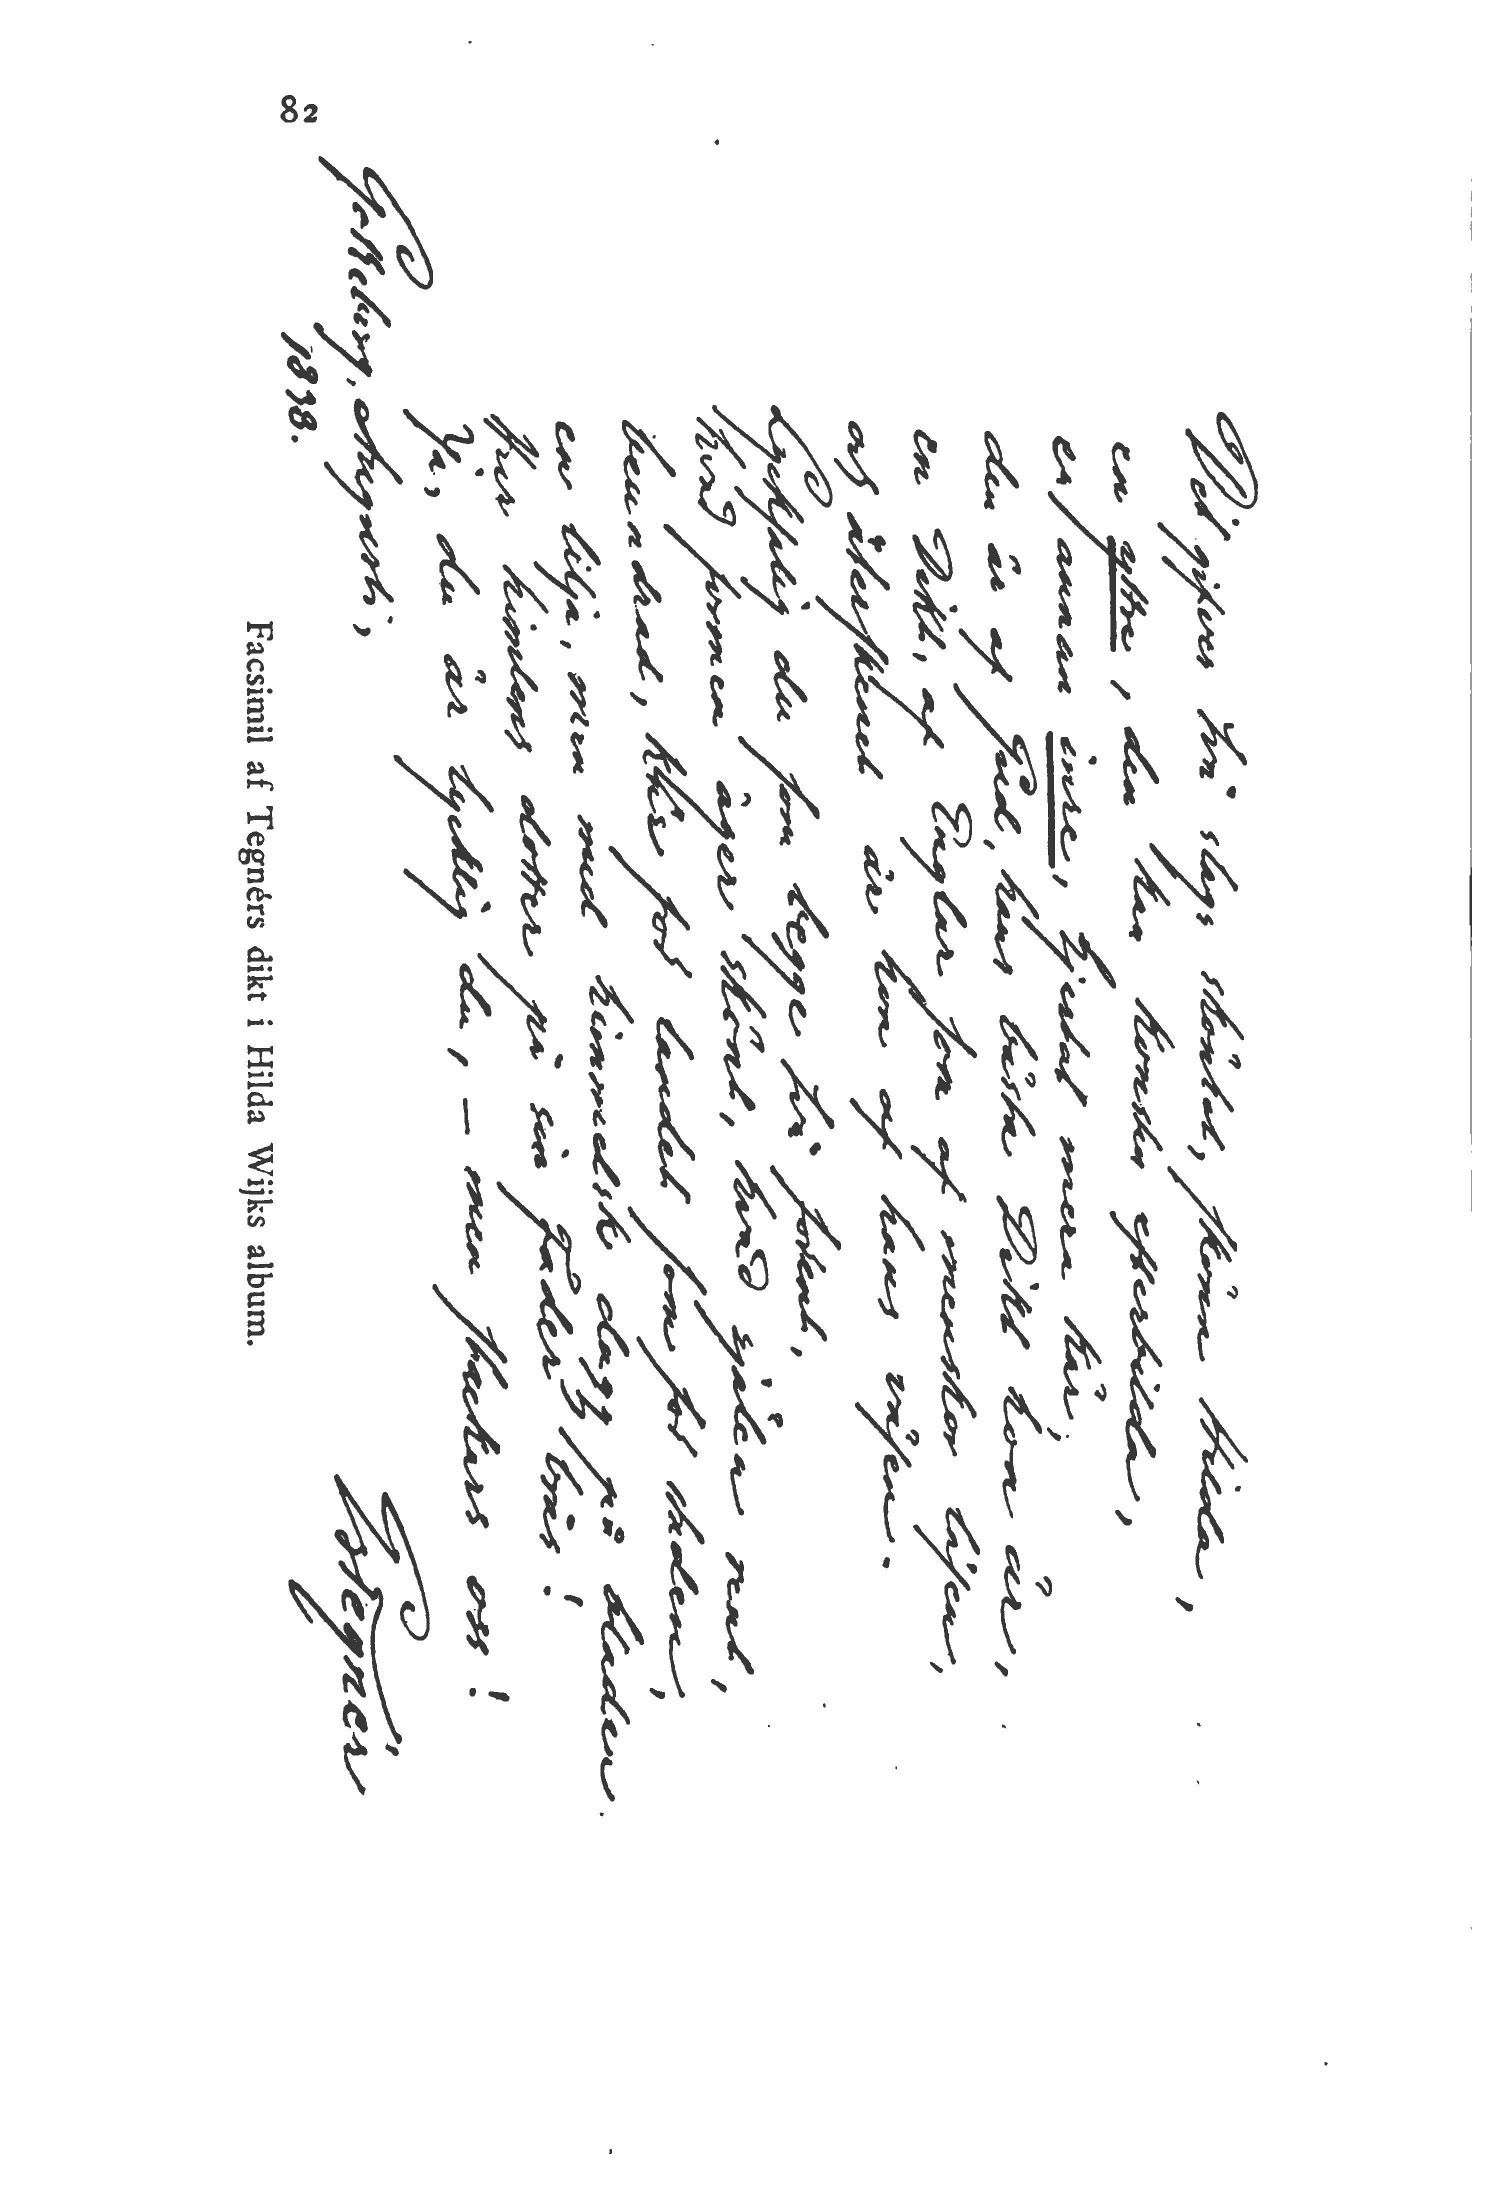 82
Det gifves två slags skönhet, sköna Hilda,
en yttre, den kan konsten efterbilda,
en annan inre, hjertat mera kär;
den är af Gud, hans bästa Dikt hon är,
en Dikt, af Englar som af menskor läsen,
och återskenet är hon af hans väsen.
Lycklig du som begge två förent,
hvad formen äger skönt, hvad själen rent,
beundrad, kär för landet som för staden,
en lilja, men med himmelsk dagg på bladen.
Hur himlens dotter på sin fader brås!
Ja, du är lycklig du, — men stackars oss!
Götheborg, Augusti,
1838.
Es. Tegnér
Facsimil af Tegnérs dikt i Hilda Wijks album.